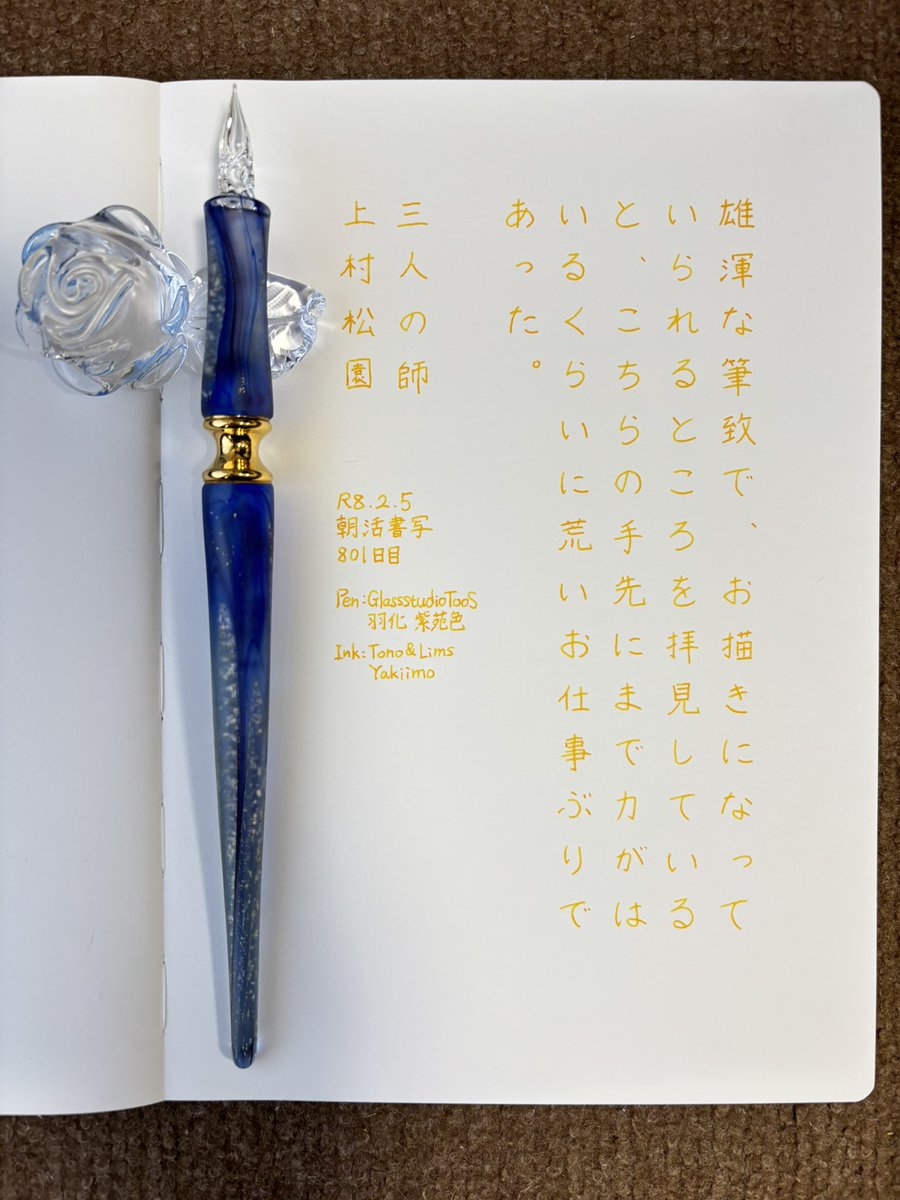 雄渾な筆致で、お描きになって
いられるところを拝見している
と、こちらの手先にまで力がは
いるくらいに荒いお仕事ぶりで
あった。
三人の師
上村松園
R8.2.5
朝活書写
801日目
Pen:GlassstudioTooS
羽化 紫苑色
Ink:Tono&Lims
Yakiimo